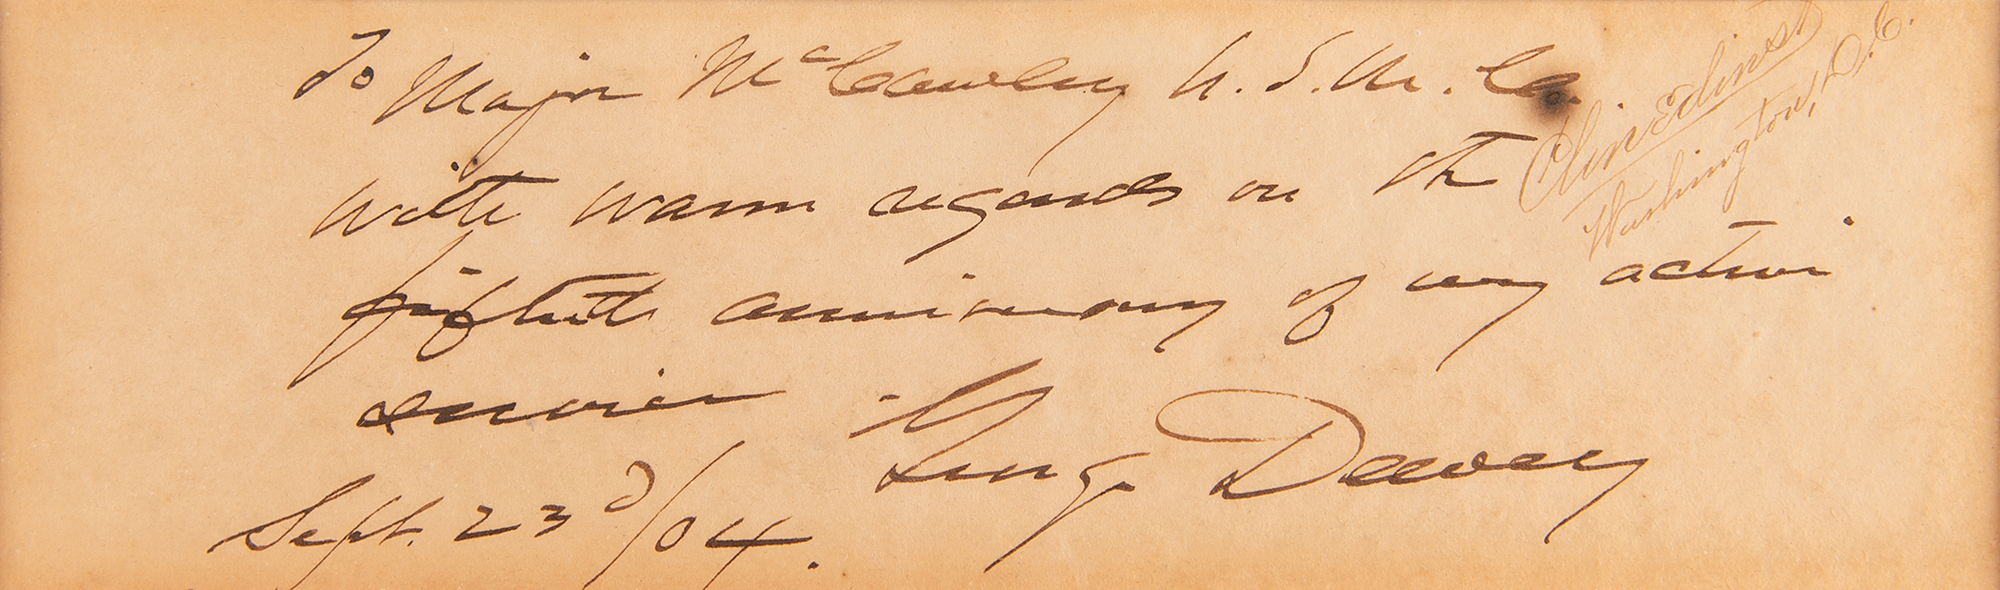 To Major McCawley U.S.M. Co.
with warm regards on the
fiftieth anniversary of my active
service
George Dewey
Sept. 23d/04.
Clinedinst
Washington, D.C.